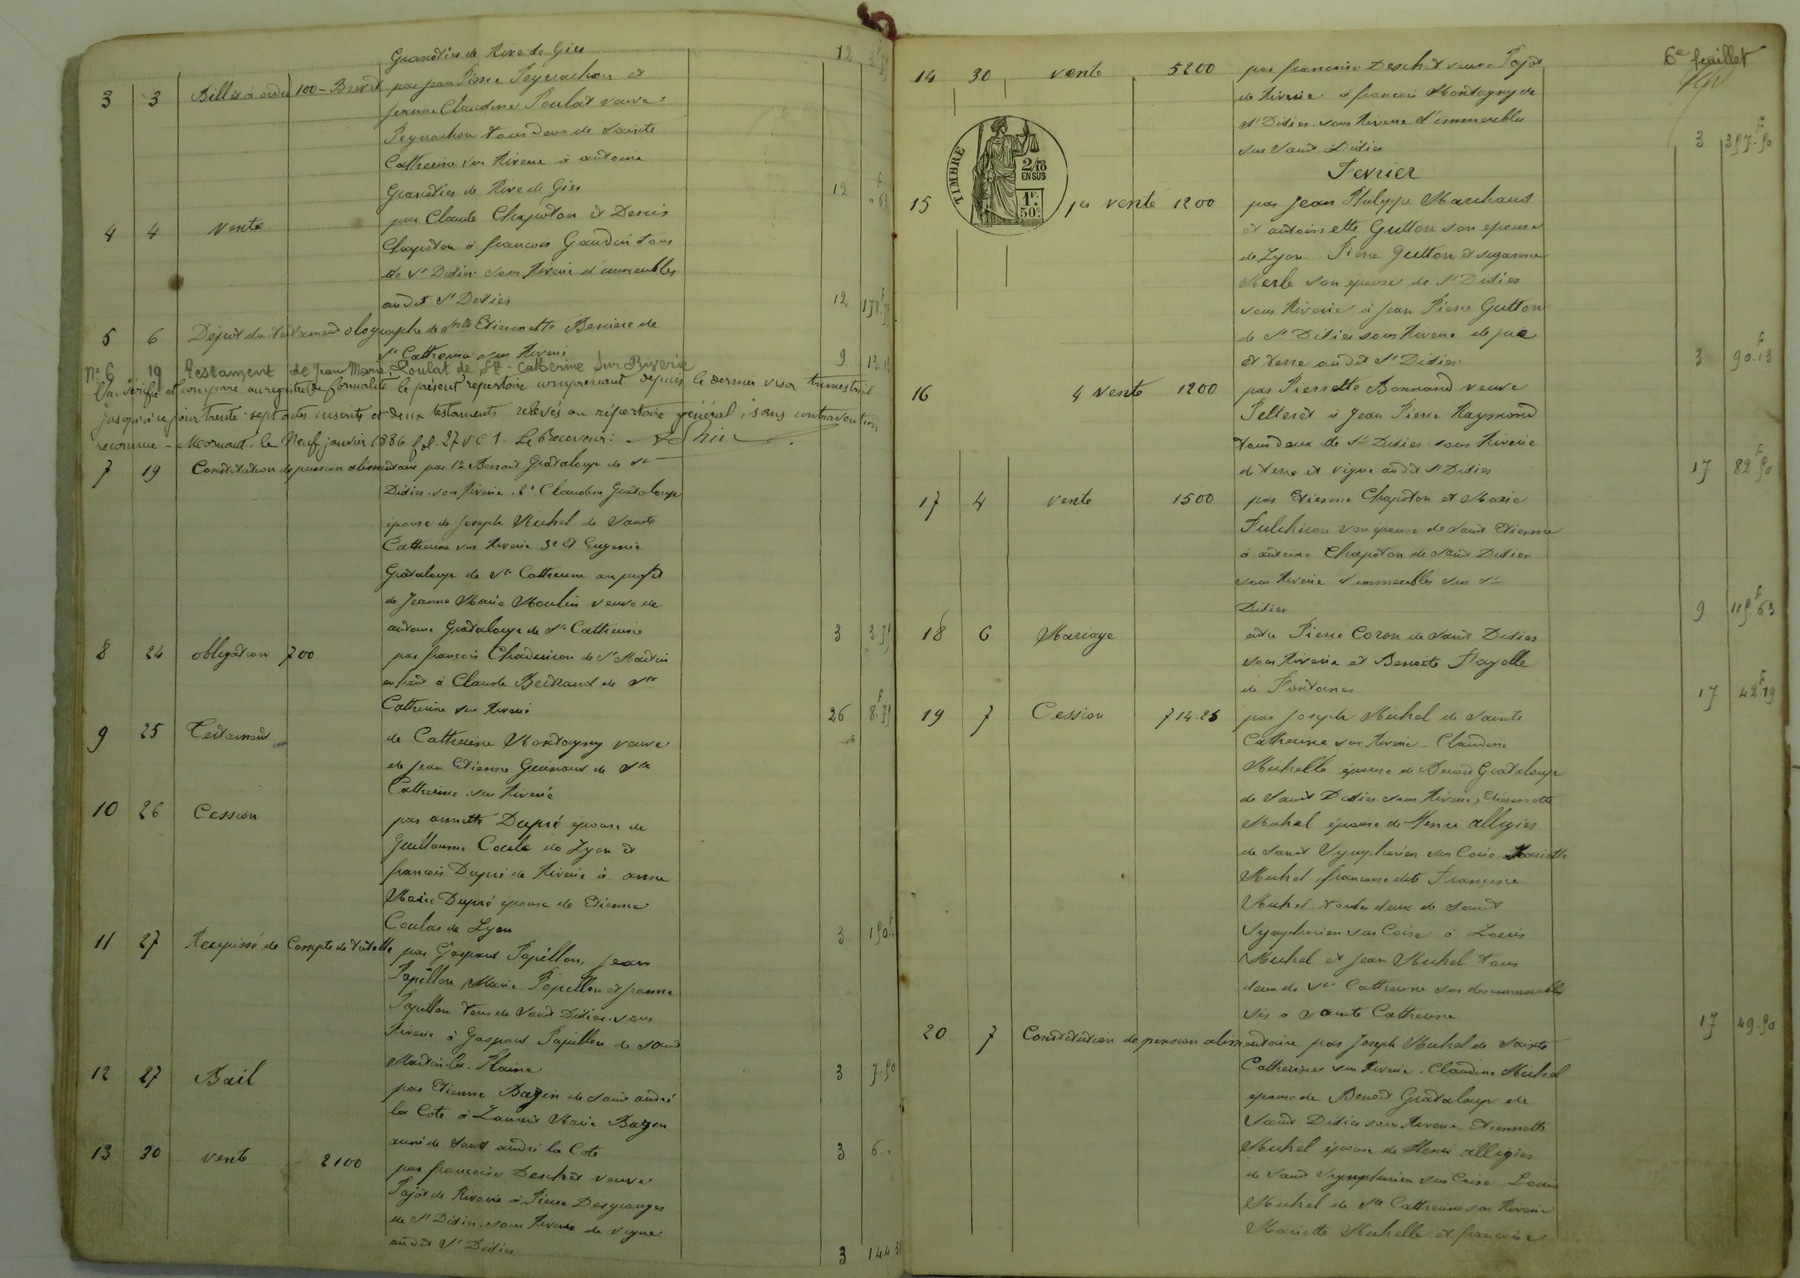 Grandties de Rive de Gier 12
3 3 Billet à ordre 100 - Brevet par jean Pierre Peyrachon et
jeanne Claudine Poulat veuve
Peyrachon tous deux de Sainte
Catherine sur Riverie à antoine
Grandties de Rive de Gier 12
4 4 Vente par Claude Chapoton et Denis
Chapoton à françois Goudin tous
de St Didier sous Riverie d'immeubles
audit St Didier 12 178
5 6 Dépôt du testament olographe de Mlle Etiennette Benière de
Ste Catherine sur Riverie 9 13.13
No 6 19 Testament de Jean Marie Poulat de Ste Catherine Sur Riverie
Vu, vérifié et comparé au registre de formalité le présent répertoire comprenant depuis le dernier visa trimestriel
jusqu'à ce jour trente-sept actes inscrits et deux testaments relevés au répertoire général, sans contravention
reconnue - Mornant, le Neuf janvier 1886 fol. 27 Vo C 1. Le Receveur:
7 19 Constitution de pension alimentaire par 1o Benoit Grataloup de St
Didier sous Riverie, 2o Claudine Grataloup
épouse de Joseph Michel de Sainte
Catherine sur Riverie 3o et Eugenie
Grataloup de Ste Catherine au profit
de Jeanne Marie Moulin veuve de
antoine Grataloup de Ste Catherine 3
8 24 obligation 700 par françois Chadeuison de St Martin
en haut à Claude Bertrand de Ste
Catherine sur Riverie 26
9 25 Testament de Catherine Montagny veuve
de Jean Etienne Guinand de Ste
Catherine sur Riverie
10 26 Cession par annette Dupré épouse de
Guillaume Coute de Lyon et
françois Dupré de Riverie à anne
Marie Dupré épouse de Etienne
Coulas de Lyon 3 150
11 27 Récépissé de Compte de tutelle par Gaspard Papillon, jean
Papillon, Marie Papillon et jeanne
Papillon tous de Saint Didier sous
Riverie à Gaspard Papillon de Saint
Martin la Plaine 3 7.50
12 27 Bail par Etienne Bazin de Saint andré
la Cote à Laurent Marie Bazin
ainé de Saint andré la Cote 3 6
13 30 vente 2100 par françoise Deschet veuve
Pajot de Riverie à Pierre Desgranges
de St Didier sous Riverie de vigne
audit St Didier 3 144
6e feuillet
14 30 vente 5200 par françoise Deschet veuve Pajot
de Riverie à françois Montagny de
St Didier sous Riverie d'immeubles
sur Saint Didier 3 357.50
TIMBRE 2/10 EN SUS 1F. 50C.
Fevrier
15 1er vente 1200 par Jean Philippe Marchand
et antoinette Gutton son épouse
de Lyon. Pierre Gutton et suzanne
Merle son épouse de St Didier
sous Riverie à Jean Pierre Gutton
de St Didier sous Riverie de pré
et terre audit St Didier 3 90.13
16 4 vente 1200 par Pierrette Bonnand veuve
Pelleret à Jean Pierre Raymond
tous deux de St Didier sous Riverie
de terre et vigne audit St Didier 17 82.50
17 4 vente 1500 par Etienne Chapoton et Marie
Fulchiron son épouse de Saint Etienne
à antoine Chapoton de Saint Didier
sous Riverie d'immeubles sur St
Didier 9 115.63
18 6 Mariage entre Pierre Coron de Saint Didier
sous Riverie et Benoite Fayolle
de Fontanes 17 42.19
19 7 Cession 714.25 par Joseph Michel de Sainte
Catherine sur Riverie. Claudine
Michelle épouse de Benoit Grataloup
de Saint Didier sous Riverie, Etiennette
Michel épouse de Henri allegier
de Saint Symphorien sur Coise Mariette
Michel, francoise dite Francine
Michel toutes deux de Saint
Symphorien sur Coise à Louis
Michel et Jean Michel tous
deux de Ste Catherine sur des immeubles
sis à Sainte Catherine 17 49.50
20 7 Constitution de pension alimentaire par Joseph Michel de Sainte
Catherine sur Riverie. Claudine Michel
épouse de Benoit Grataloup de
Saint Didier sous Riverie. Etiennette
Michel épouse de Henri allegier
de Saint Symphorien sur Coise. Louis
Michel de Ste Catherine sur Riverie
Mariette Michelle et francoise